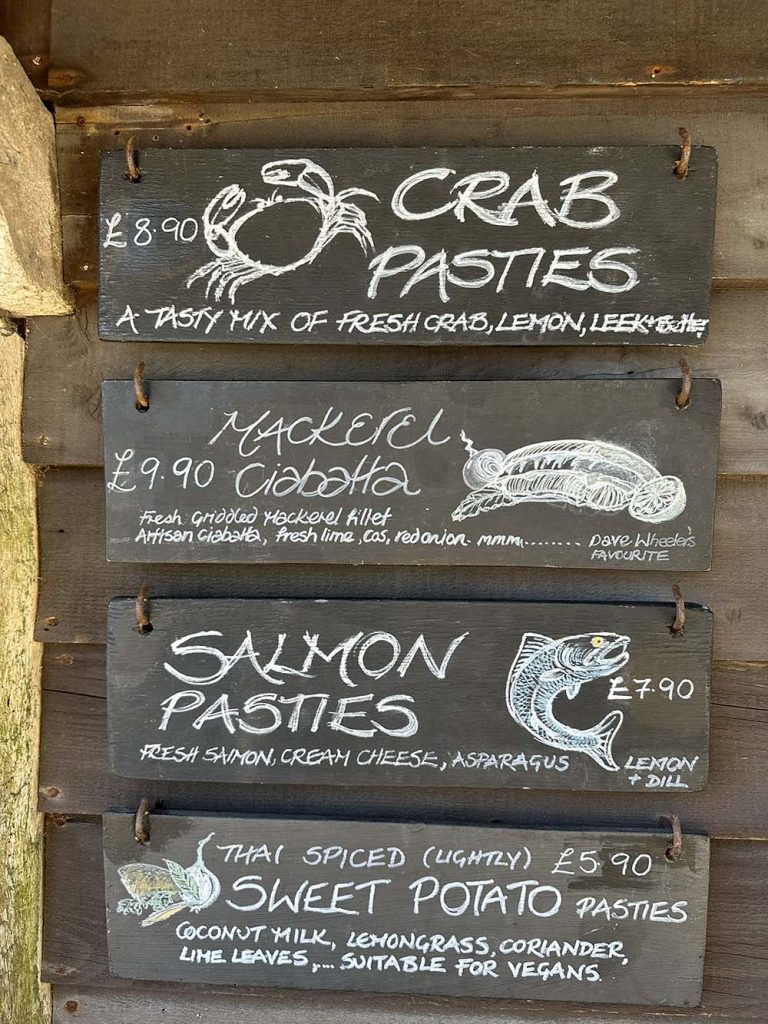 £8.90
CRAB
PASTIES
A TASTY MIX OF FRESH CRAB, LEMON, LEEK +
MACKEREL
£9.90
Ciabatta
Fresh Griddled Mackerel fillet
Artisan Ciabatta, fresh lime, cos, red onion. mmm........
Dave Wheeler's
FAVOURITE
SALMON
PASTIES
£7.90
FRESH SALMON, CREAM CHEESE, ASPARAGUS
LEMON
+ DILL
THAI SPICED (LIGHTLY) £5.90
SWEET POTATO PASTIES
COCONUT MILK, LEMONGRASS, CORIANDER,
LIME LEAVES,... SUITABLE FOR VEGANS.